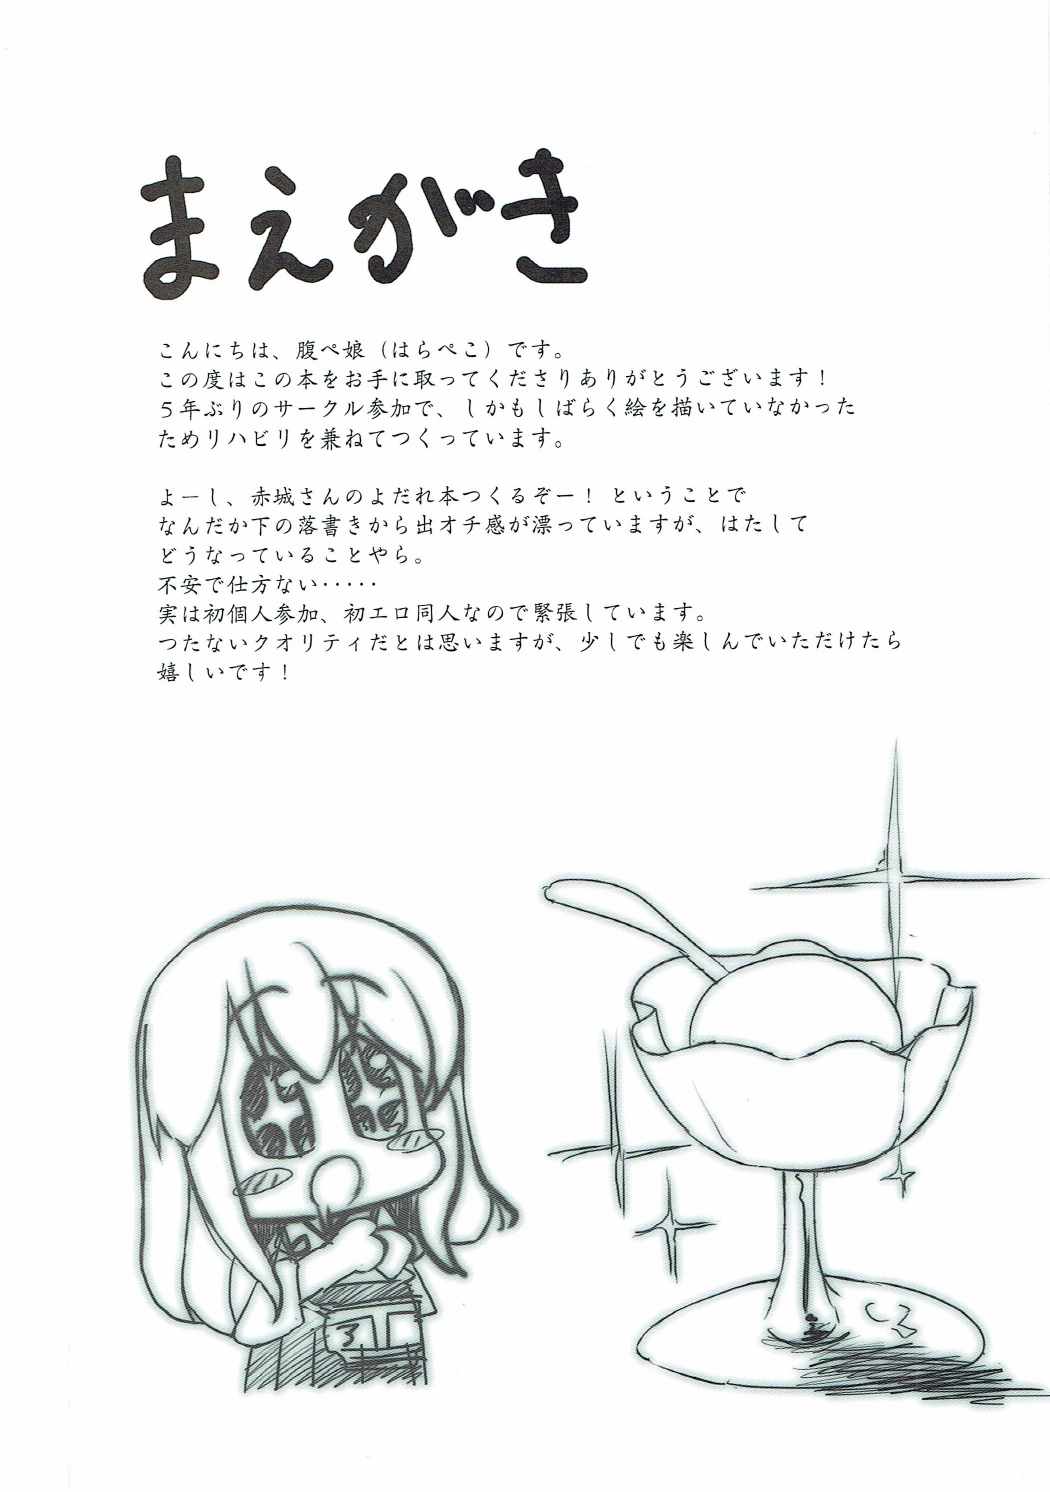 まえがき
こんにちは、腹ペ娘（はらぺこ）です。
この度はこの本をお手に取ってくださりありがとうございます！
５年ぶりのサークル参加で、しかもしばらく絵を描いていなかった
ためリハビリを兼ねてつくっています。
よーし、赤城さんのよだれ本つくるぞー！ということで
なんだか下の落書きから出オチ感が漂っていますが、はたして
どうなっていることやら。
不安で仕方ない‥‥‥
実は初個人参加、初エロ同人なので緊張しています。
つたないクオリティだとは思いますが、少しでも楽しんでいただけたら
嬉しいです！